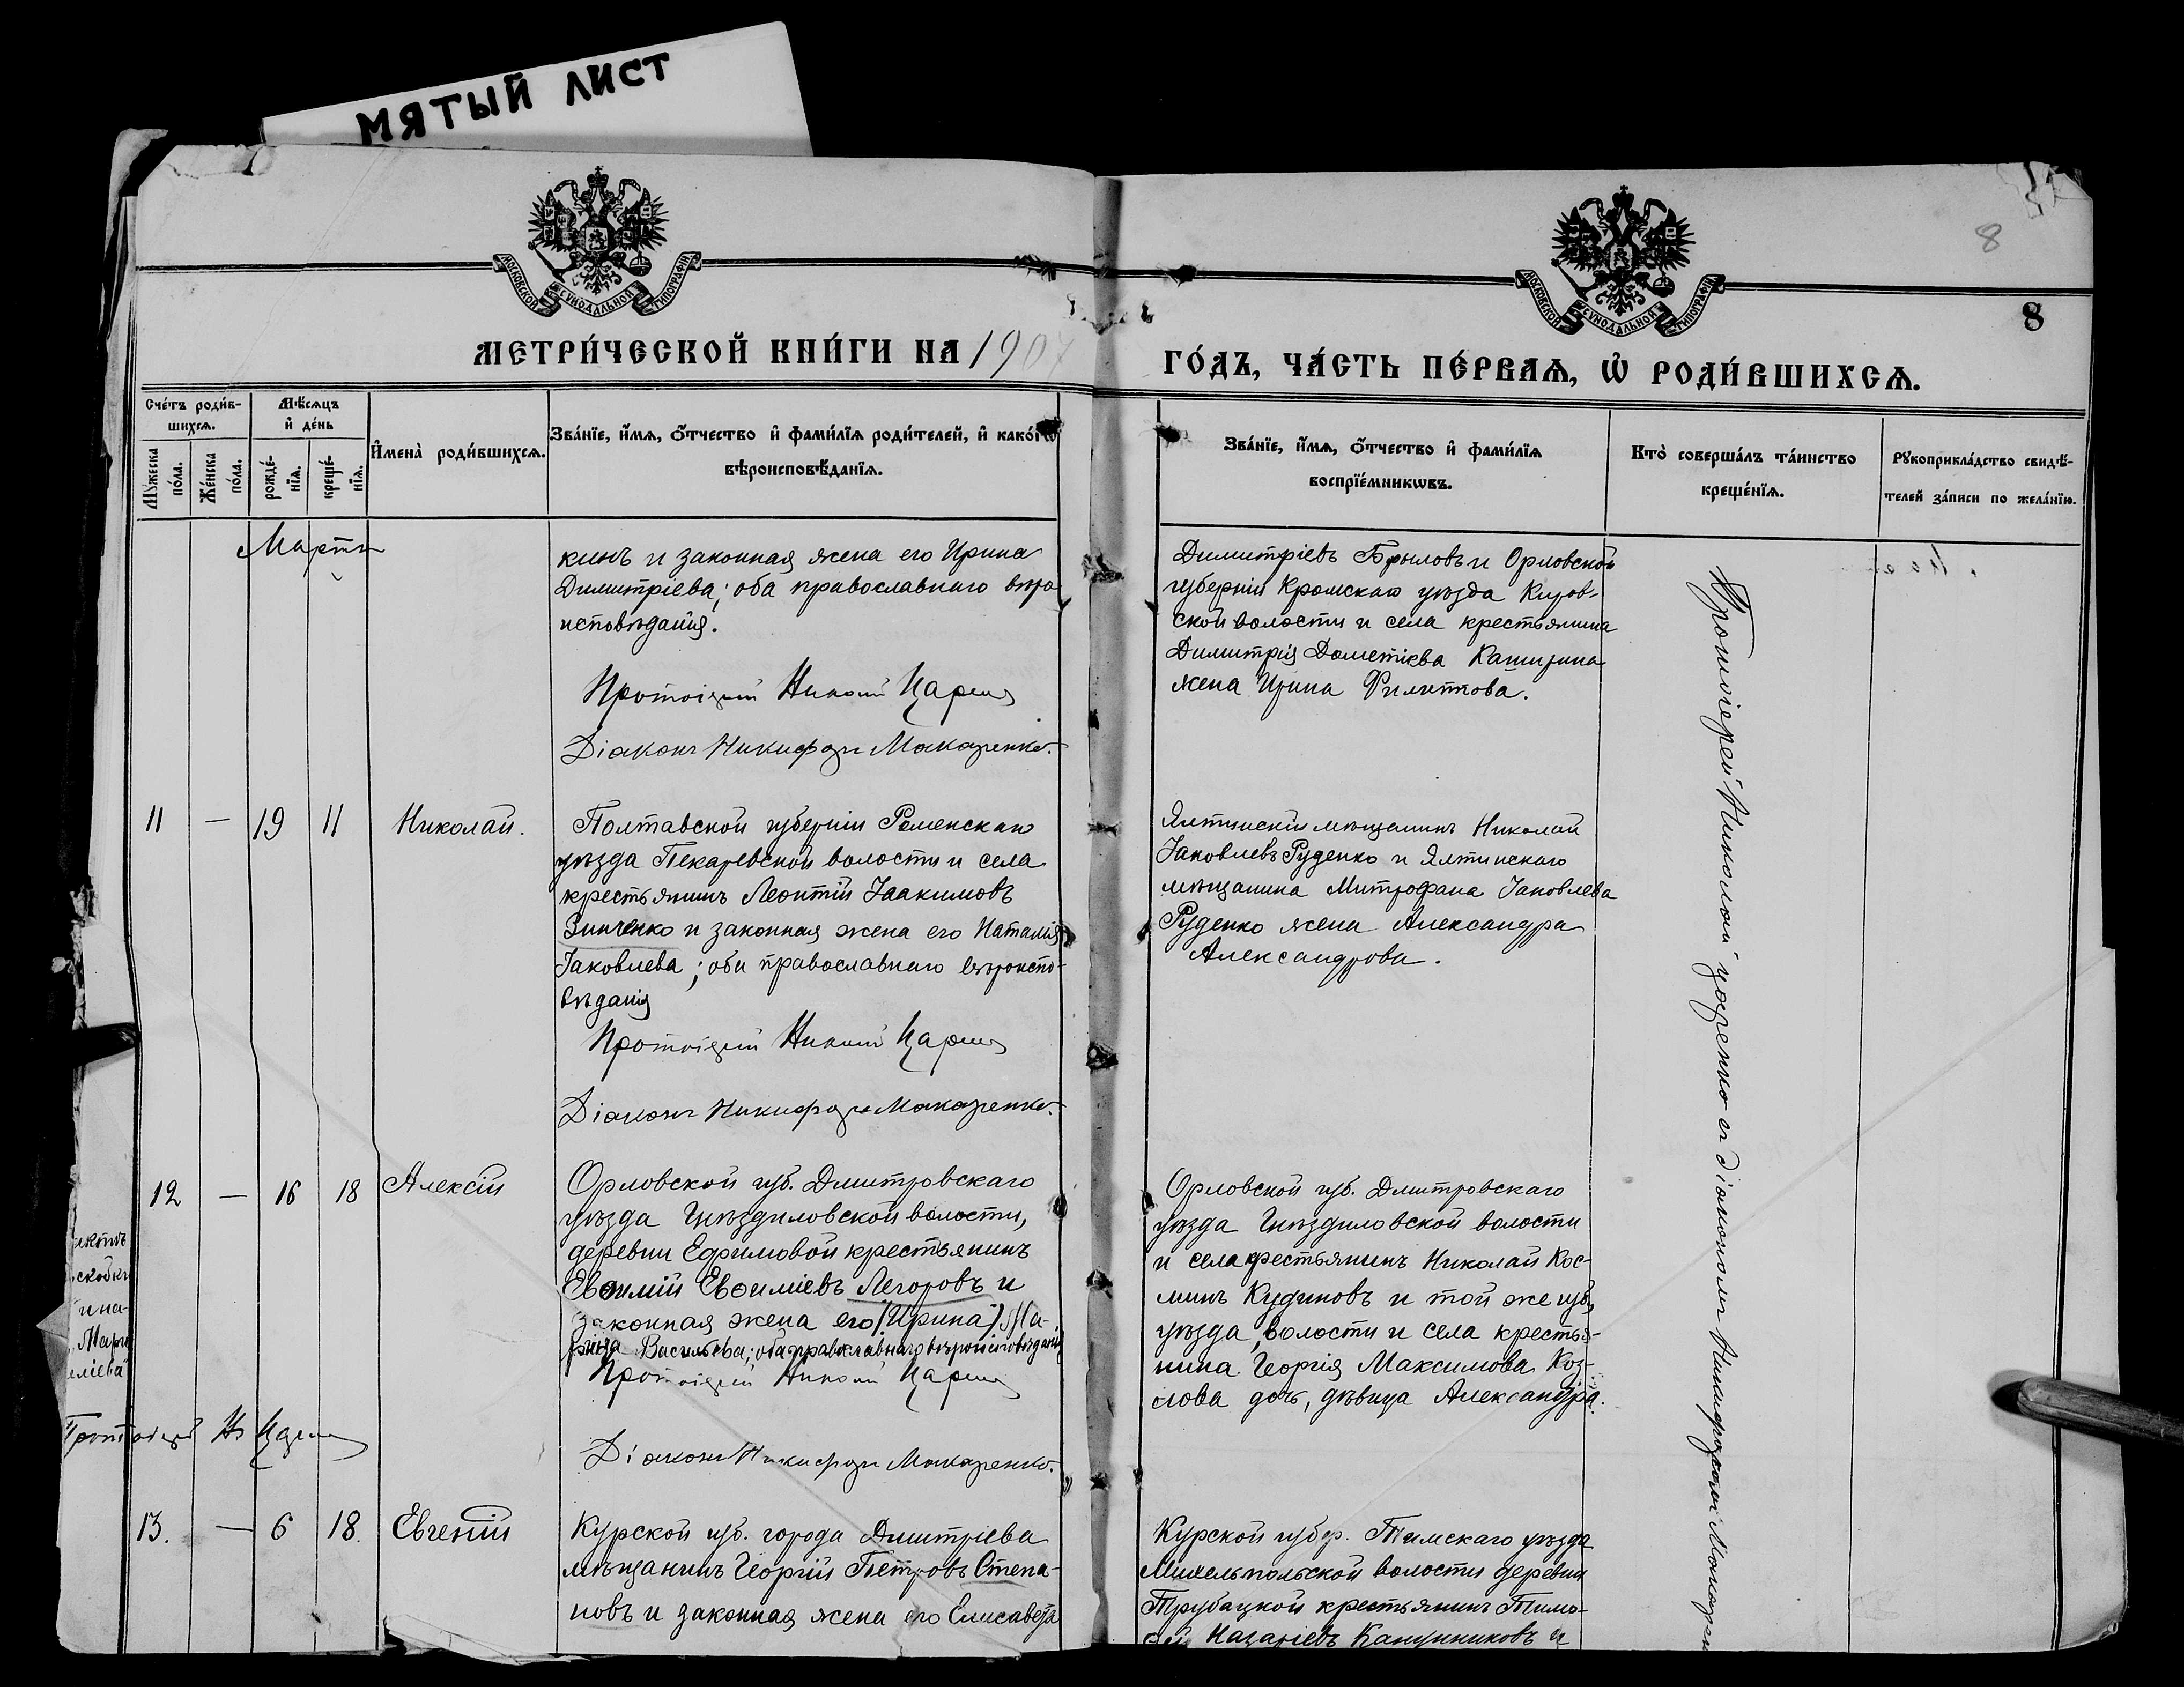 МЯТЫЙ ЛИСТ
МОСКОВСКОЙ СѴНОДАЛЬНОЙ ТИПОГРАФІИ
МОСКОВСКОЙ СѴНОДАЛЬНОЙ ТИПОГРАФІИ
8
8
МЕТРИ́ЧЕСКОЙ КНИ́ГИ НА 1907
ГО́ДЪ, ЧА́СТЬ ПЕ́РВАѦ, Ѡ҆ РОДИ́ВШИХСѦ.
Сче́тъ роди́в-
шихсѧ.
Мꙋ́жеска
по́ла.
Же́нска
по́ла.
Мѣ́сѧцъ
и҆ де́нь
рожде́-
нїѧ.
креще́-
нїѧ.
И҆мена̀ роди́вшихсѧ.
Зва́нїе, и҆́мѧ, ѻ҆́тчество и҆ фами́лїѧ роди́телей, и҆ како́гѡ
вѣроисповѣ́данїѧ.
Зва́нїе, и҆́мѧ, ѻ҆́тчество и҆ фами́лїѧ
воспрїе́мникѡвъ.
Кто̀ соверша́лъ та́инство
креще́нїѧ.
Рꙋкоприкла́дство свидѣ́-
телей за́писи по жела́нїю.
Мартъ
кинъ и законная жена его Ирина
Димитріева; оба православнаго вѣро-
исповѣданія.
Протоіерей Николай Царен
Діаконъ Никифоръ Макаренко.
Димитріевъ Брыловъ и Орловской
губерніи Кромскаго уѣзда Киров-
ской волости и села крестьянина
Димитрія Дометіева Каширина
жена Ирина Филиппова.
11 — 19 11 Николай.
Полтавской губерніи Роменскаго
уѣзда Пекаревской волости и села
крестьянинъ Леонтій Іоакимовъ
Зинченко и законная жена его Наталія
Іаковлева; оба православнаго вѣроиспо-
вѣданія
Протоіерей Николай Царен
Діаконъ Никифоръ Макаренко.
Ялтинскій мѣщанинъ Николай
Іаковлевъ Руденко и Ялтинскаго
мѣщанина Митрофана Іаковлева
Руденко жена Александра
Александрова.
12 — 16 18 Алексій
Орловской губ. Дмитровскаго
уѣзда Гнѣздиловской волости,
деревни Ефимовой крестьянинъ
Евѳимій Евѳиміевъ Легоровъ и
законная жена его (Ирина) Ма-
рина Васильева; оба православнаго вѣроисповѣданія
Протоіерей Николай Царен
Діаконъ Никифоръ Макаренко.
Орловской губ. Дмитровскаго
уѣзда Гнѣздиловской волости
и села крестьянинъ Николай Кос-
минъ Кудиновъ и той же губ.,
уѣзда, волости и села крестья-
нина Георгія Максимова Коз-
лова дочь, дѣвица Александра.
13. — 6 18. Евгеній
Курской губ. города Дмитріева
мѣщанинъ Георгій Петровъ Степа-
новъ и законная жена его Елисавета
Курской губер. Тимскаго уѣзда
волости деревни
Трубацкой крестьянинъ Тимо-
ѳей Назаріевъ и
Протоіерей Николай Царенко съ діакономъ Никифоромъ Макаренко
скобк
и на-
Мари
еліева"
Протоіерей Н Царен